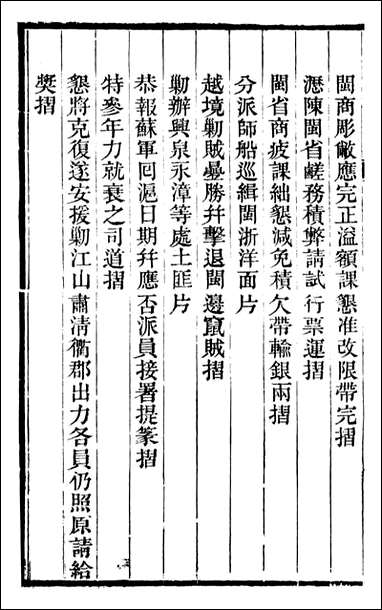 閩商彫敝應完正溢額課懇准改限帶完摺
瀝陳閩省鹺務積弊請試行票運摺
閩省商疲課絀懇減免積欠帶輸銀兩摺
分派師船巡緝閩浙洋面片
越境勦賊曡勝并擊退閩邊竄賊摺
勦辦興泉永漳等處土匪片
恭報蘇軍囘滬日期并應否派員接署提篆摺
特參年力就衰之司道摺
懇將克復遂安援勦江山肅清衢郡出力各員仍照原請給
奬摺